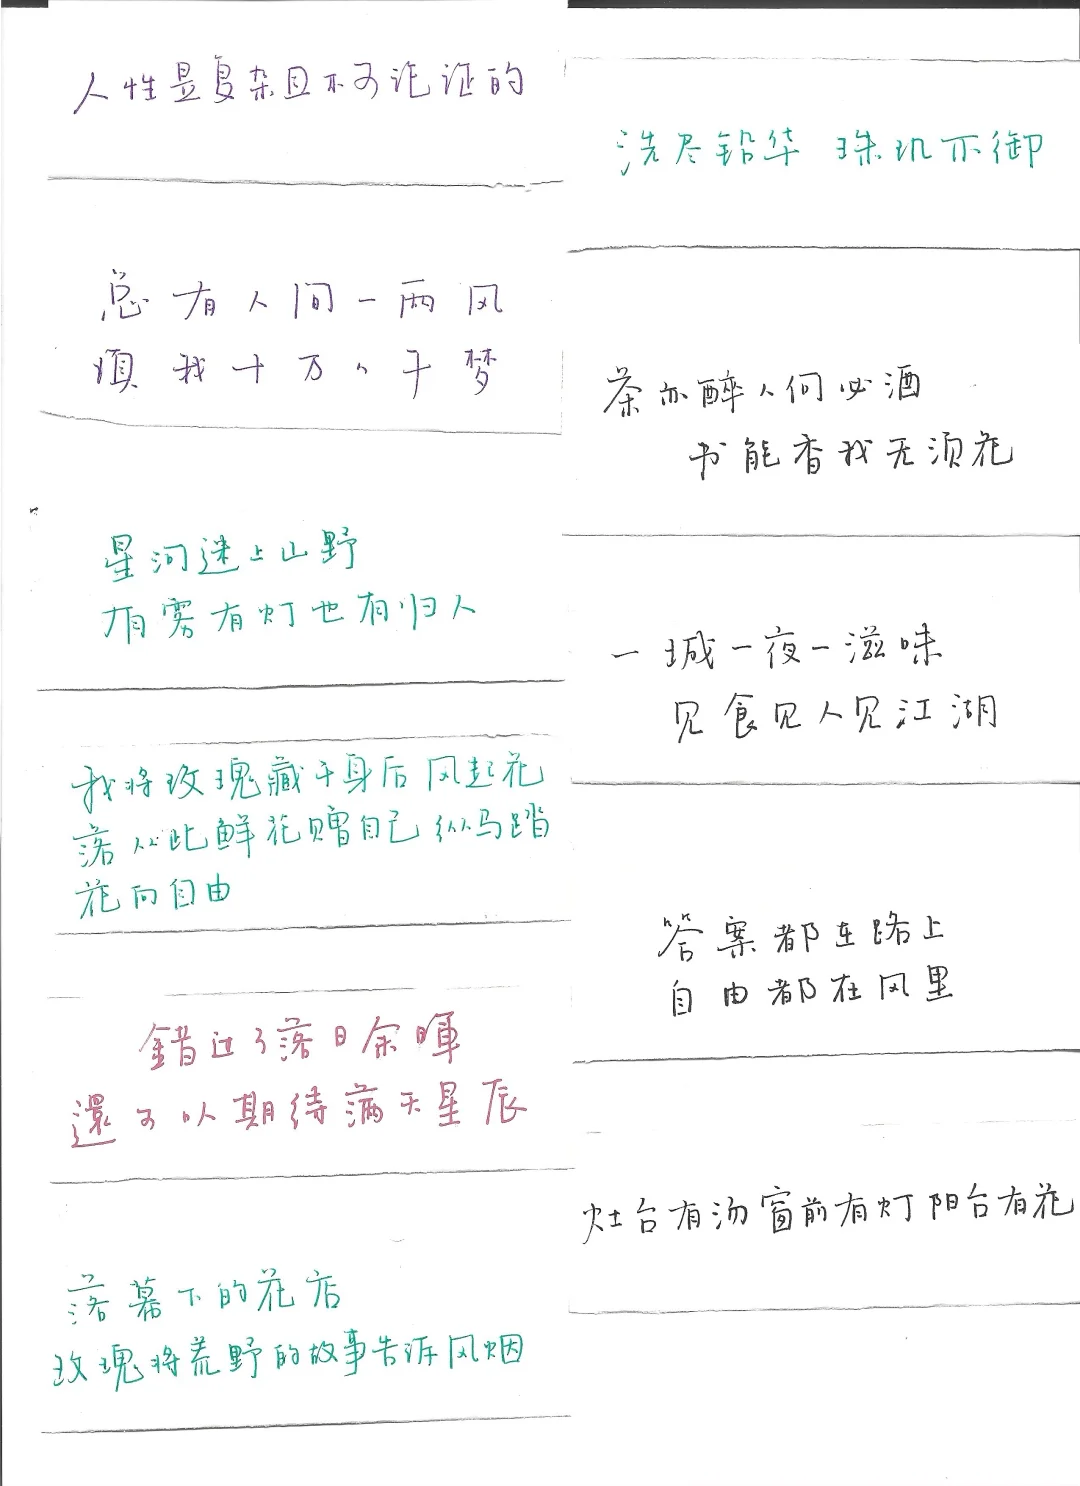 人性是复杂且不可论证的
总有人间一两风
填我十万八千梦
星河迷上山野
有雾有灯也有归人
我将玫瑰藏于身后 风起花
落从此鲜花赠自己 纵马踏
花向自由
錯过了落日余暉
還可以期待满天星辰
落幕下的花店
玫瑰将荒野的故事告诉风烟
洗尽铅华 珠玑不御
茶亦醉人何必酒
书能香我无须花
一城一夜一滋味
见食见人见江湖
答案都在路上
自由都在风里
灶台有汤窗前有灯阳台有花